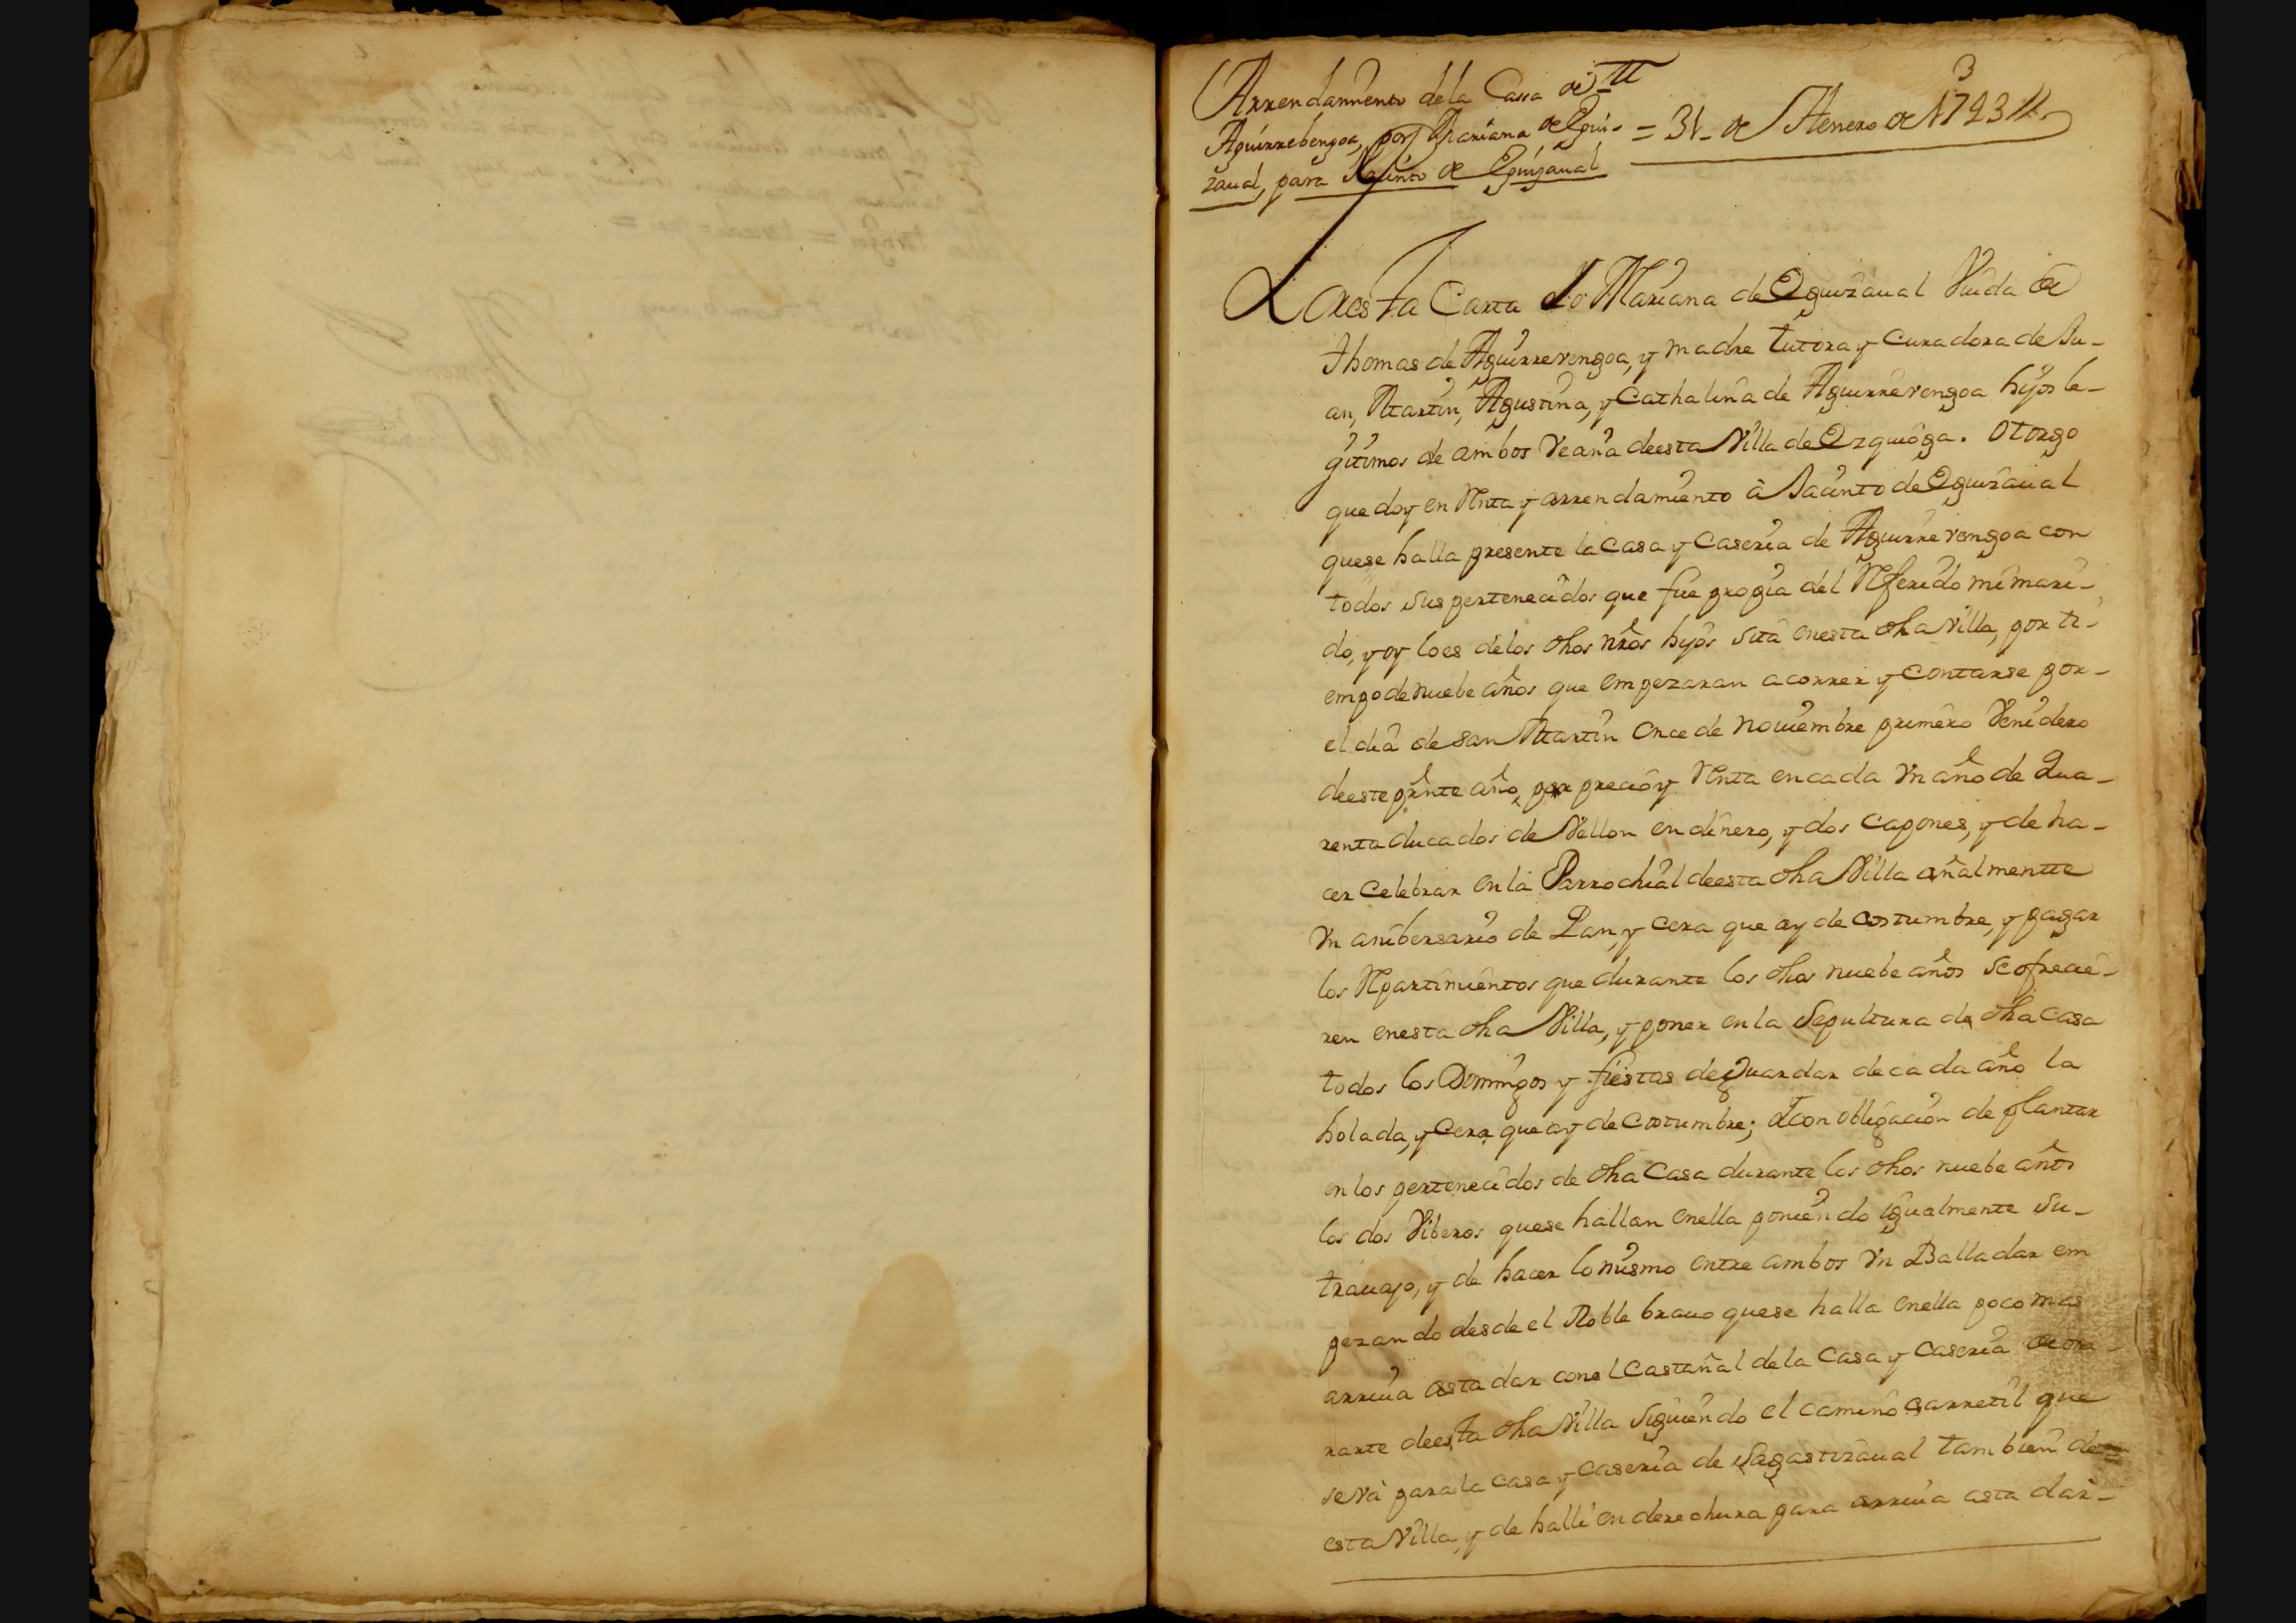 3
Arrendamiento dela Cassa de
Aguirrebengoa, por Mariana de Egui-
zaual, para Jacinto de Eguizaual
= 31- de Henero de 1723 //.
Por esta Carta Yo Mariana de Eguizaual Viuda de
Thomas de Aguirrevengoa, y madre tutora y Curadora de Ju-
an, Martin, Agustina, y Cathalina de Aguirrevengoa hijos le-
gitimos de ambos Veçina deesta Villa de Ezquioga. Otorgo
que doy en Renta y arrendamiento à Jacinto de Eguizaual
quese halla presente la Casa y Caseria de Aguirrevengoa con
todos sus pertenecidos que fue propia del Referido mi mari-
do, y oy loes delos dhos nros hijos sita enesta dha villa, por ti-
empo de nuebe años que empezaran a correr y Contarse por-
el dia de san Martin Once de Nouiembre primero Venidero
deeste prnte año, por precio y Renta en cada Vn año de Qua-
renta ducados de Vellon en dinero, y dos Capones, y de ha-
cer Celebrar en la Parrochial deesta dha Villa añalmentte
Vn anibersario de Pan, y Cera que ay de costumbre, y pagar
los Repartimientos que durante los dhos nuebe años se ofrecie-
ren enesta dha Villa, y poner en la Sepultura de dha Casa
todos los Domingos y fiestas de Guardar de cada año la
holada, y Cera que ay de Costumbre; Y con obligacion de plantar
en los pertenecidos de dha Casa durante los dhos nuebe años
los dos Viberos quese hallan enella poniendo igualmente su-
trauajo, y de hacer lo mismo entre ambos Vn Balladar em
pezando desde el Roble brauo quese halla enella poco mas
arriua asta dar con el Castañal de la Casa y Caseria de
rarte deesta dha Villa siguiendo el camino carretil que
se và para la casa y Caseria de Sagastizaual tambien de
esta Villa, y de halli en derechura para arriua asta dar-